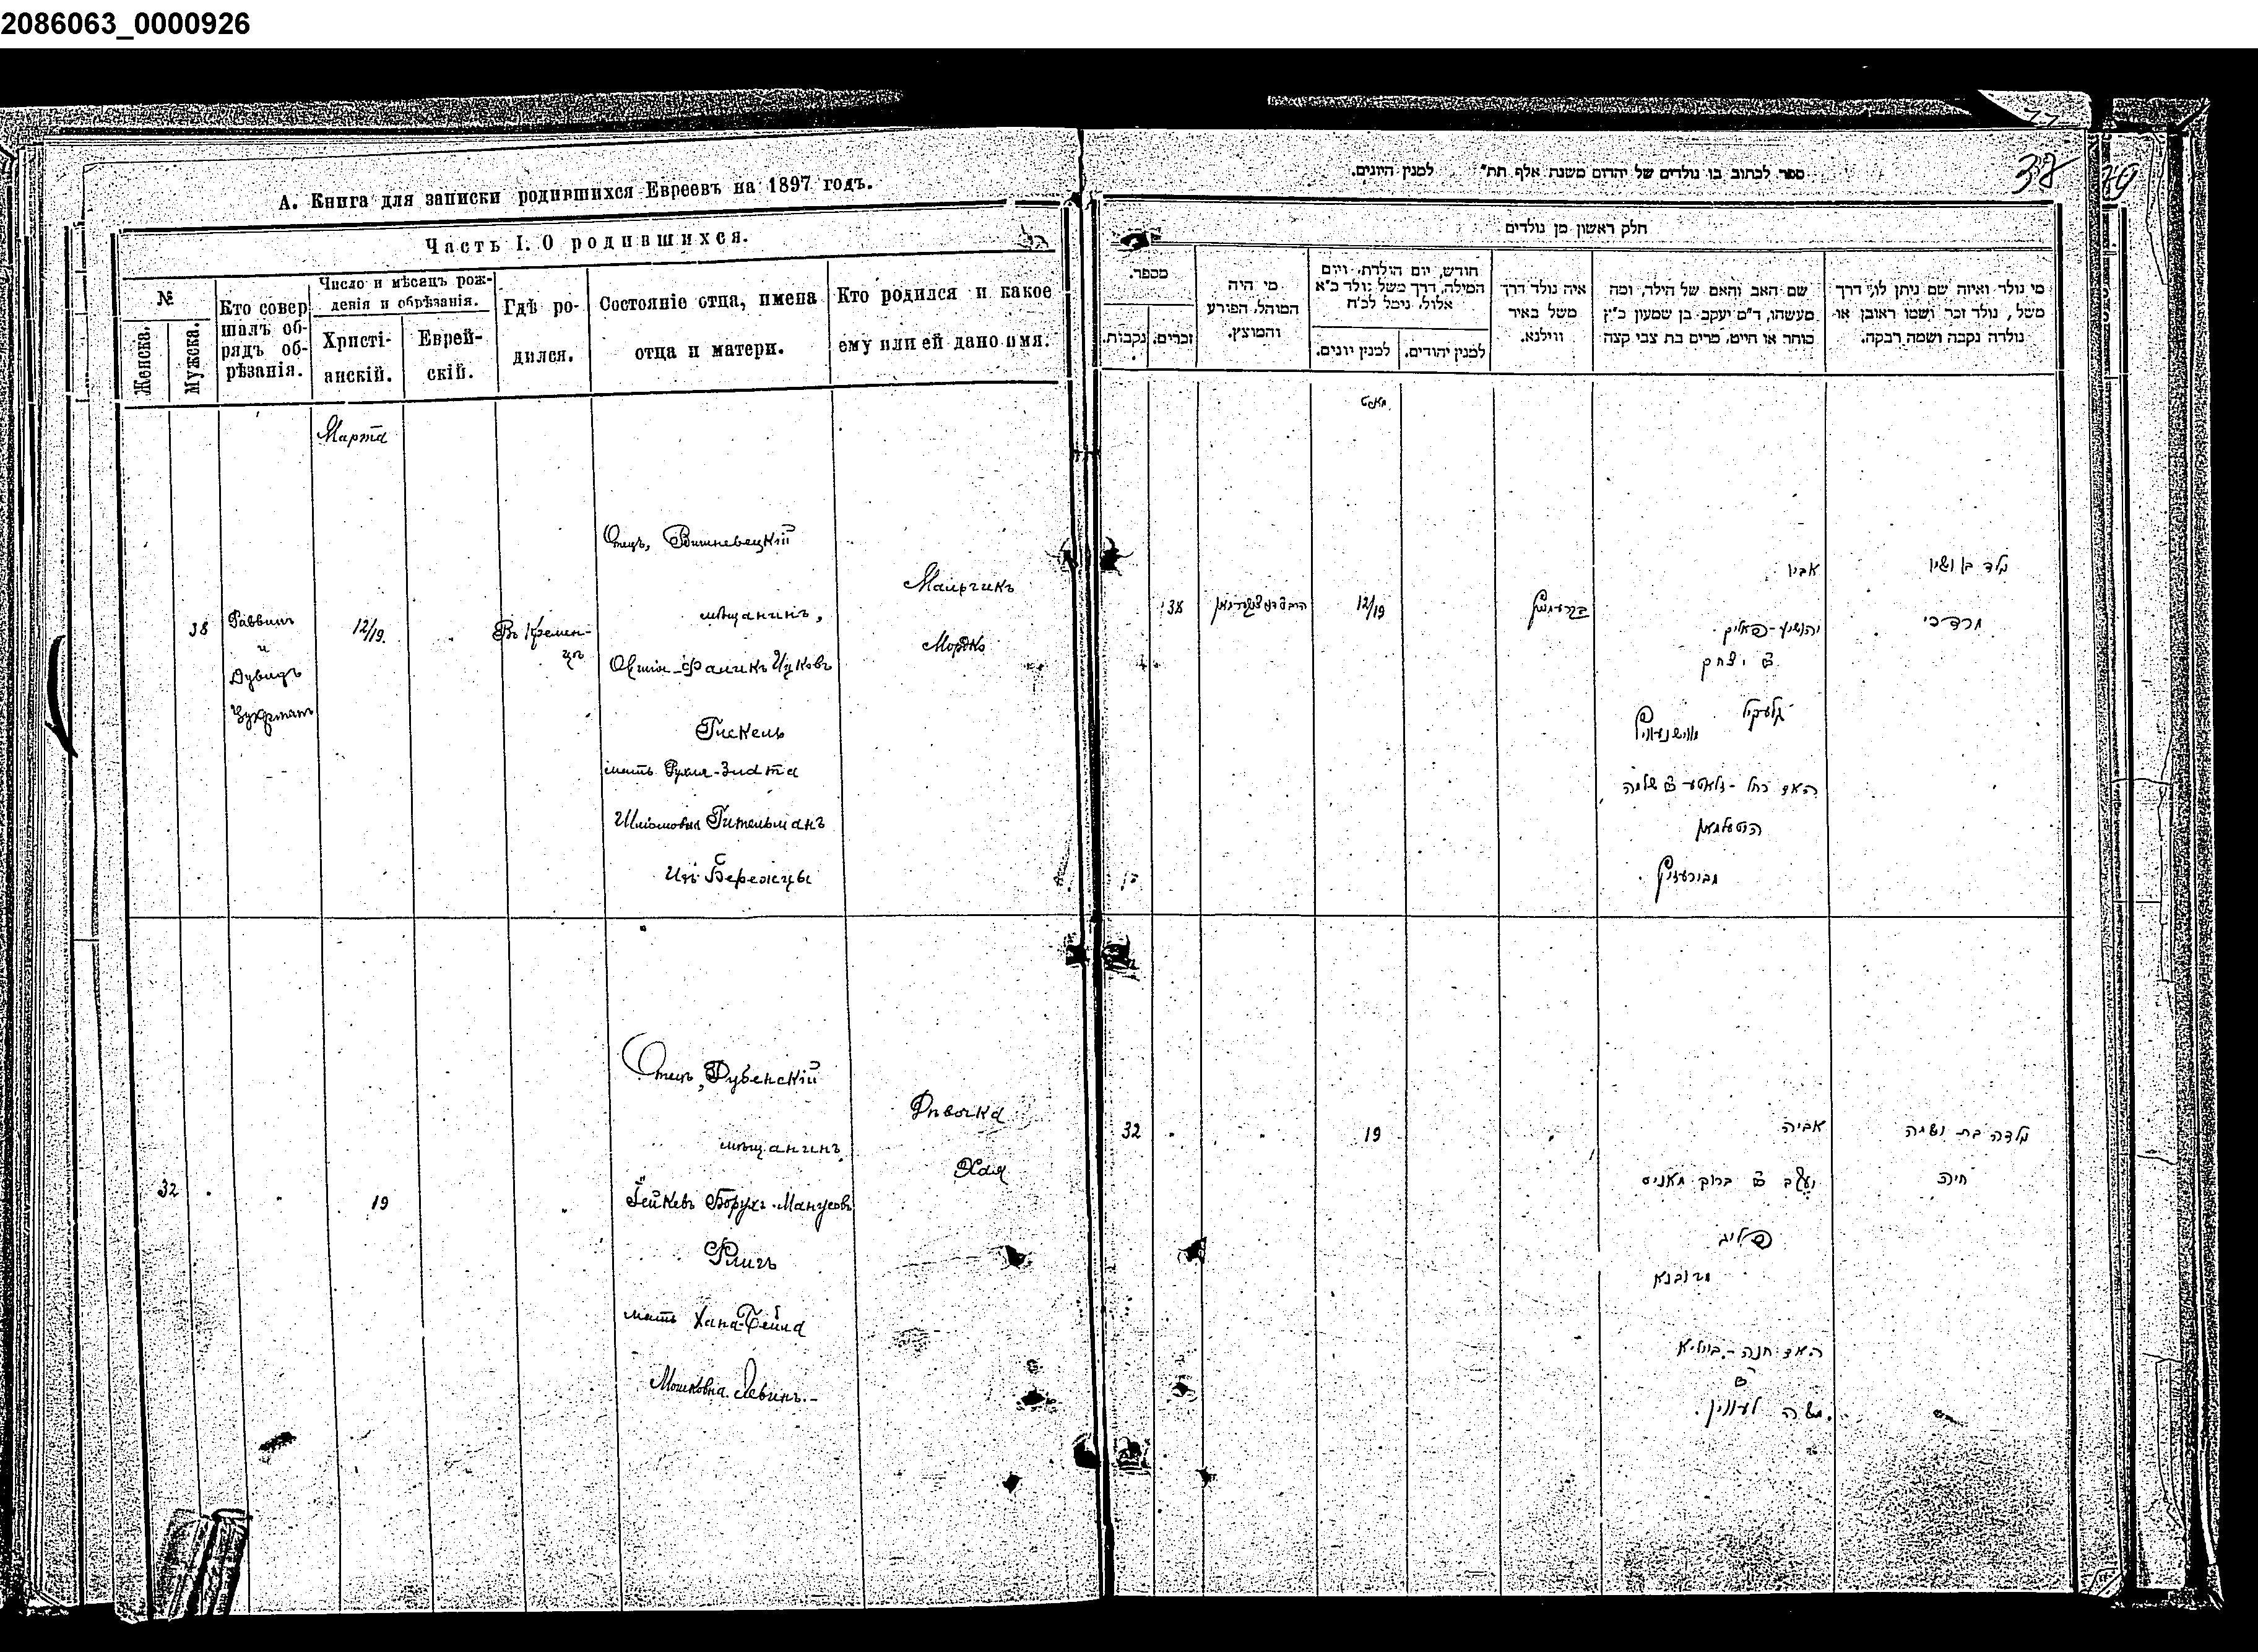 2086063_0000926
А. Книга для записки родившихся Евреевъ на 1897 годъ.
Часть I. О родившихся.
№
Женска.
Мужска.
Кто совер
шалъ об-
рядъ об-
рѣзанія.
Число и мѣсяцъ рож-
денія и обрѣзанія.
Христі-
анскій.
Еврей-
скій.
Гдѣ ро-
дился.
Состояніе отца, имена
отца и матери.
Кто родился и какое
ему или ей дано имя.
Марта
38
Раввинъ
и
Дувидъ
Цукрманъ
12/19.
Въ Кремен-
цѣ
Отецъ, Вишневецкій
мѣщанинъ,
Овшія-Фаликъ Ицковъ
Гискель
мать Рухля-Злата
Шліомовна Гительманъ
изъ Бережцы
Мальчикъ
Мордко
32
19
Отецъ, Дубенскій
мѣщанинъ
Гейкевъ Борухъ-Манусовъ
Флигъ
мать Хана-Бейла
Мошковна Левинъ.-
Дѣвочка
Хая
ספר לכתוב בו נולדים של יהדום משנת אלף תת" למנין היונים.
38
39
חלק ראשון מן נולדים
מספר.
נקבות.
זכרים.
מי היה
המוהל, הפורע
והמוצץ.
חודש, יום הולדת, ויום
המילה, דרך משל נולד כ"א
אלול, נימל לכ"ח
למנין יונים.
למנין יהודים.
איה נולד דרך
משל באיר
ווילנא.
שם האב והאם של הילד, ומה
מעשהו, ד"מ יעקב בן שמעון כ"ץ
סוחר או חייט, מרים בת צבי קצה
מי נולד ואיזה שם ניתן לו, דרך
משל, נולד זכר ושמו ראובן או
נולדה נקבה ושמה רבקה.
מארט
38
12/19
אביו
יהושיע-פאליק
ב יצחק
האם רחל-זלאטע ב שלמה
נולד בן ושמו
מרדכי
32
19
אביה
ב ברוך מאניס
פליג
מדובנא
האם חנה-ביילא
ב
משה לעווין.
נולדה בת ושמה
חיה